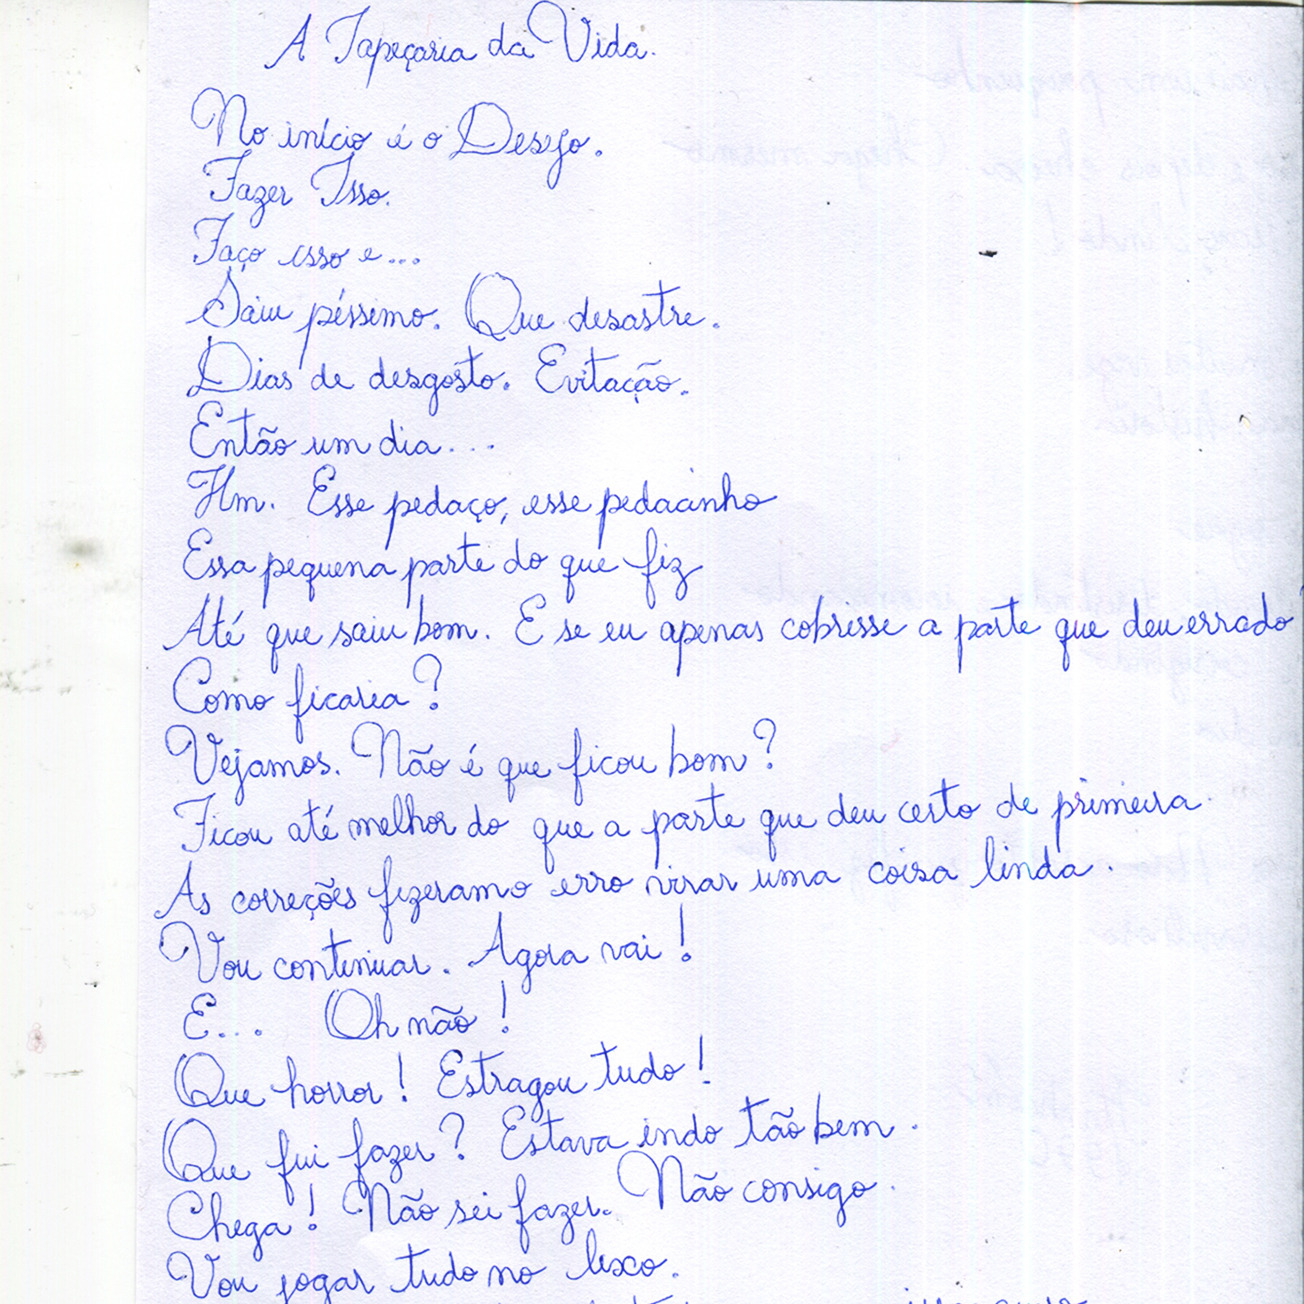 A Tapeçaria da Vida.
No início é o Desejo.
Fazer Isso.
Faço isso e...
Saiu péssimo. Que desastre.
Dias de desgosto. Evitação.
Então um dia...
Hm. Esse pedaço, esse pedacinho
Essa pequena parte do que fiz
Até que saiu bom. E se eu apenas cobrisse a parte que deu errado?
Como ficaria?
Vejamos. Não é que ficou bom?
Ficou até melhor do que a parte que deu certo de primeira.
As correções fizeram o erro virar uma coisa linda.
Vou continuar. Agora vai!
E... Oh não!
Que horror! Estragou tudo!
Que fui fazer? Estava indo tão bem.
Chega! Não sei fazer. Não consigo.
Vou jogar tudo no lixo.